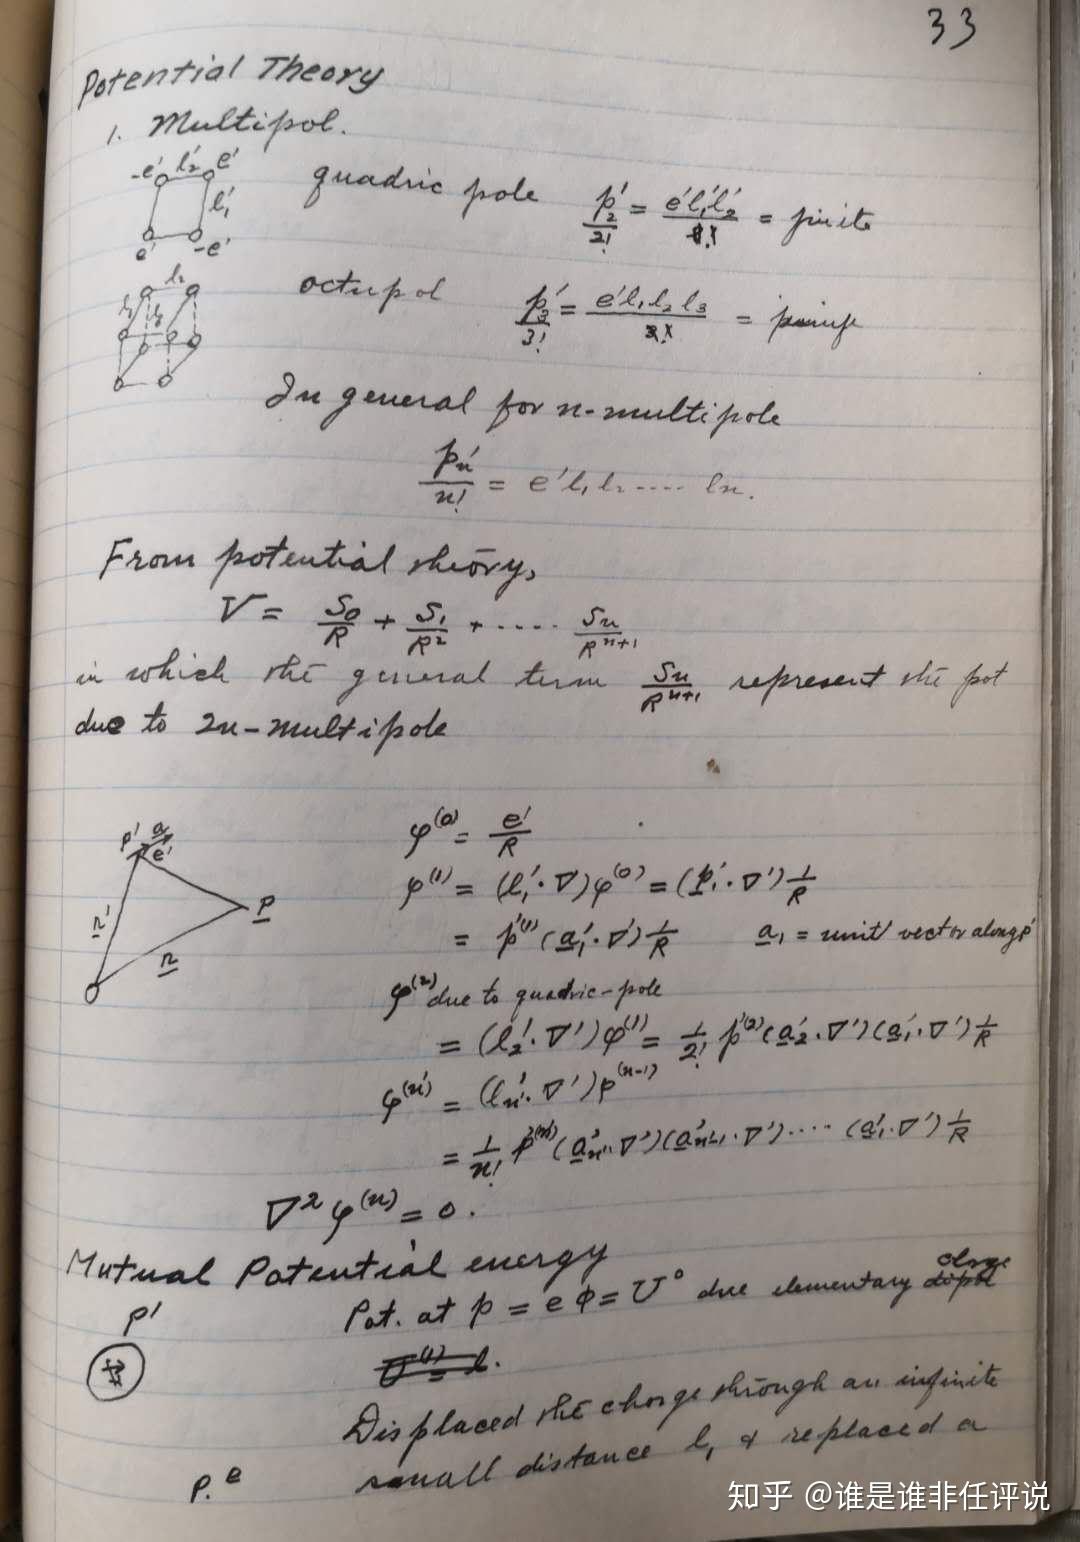 33
Potential Theory
1. Multipol.
-e' l₂' e'
l₁'
e' -e'
quadric pole p₂'/2! = e'l₁'l₂' = finite
l₂
octupol p₃'/3! = e'l₁l₂l₃ =
In general for n-multipole
pₙ'/n! = e'l₁l₂.... lₙ.
From potential theory,
V = S₀/R + S₁/R² + .... Sₙ/Rⁿ⁺¹
in which the general term Sₙ/Rⁿ⁺¹ represent the pot
due to 2n-multipole
P' a e'
r' P
r
O
φ⁽⁰⁾ = e'/R
φ⁽¹⁾ = (l₁'·∇)φ⁽⁰⁾ = (p₁'·∇')1/R
= p'⁽¹⁾(a₁'·∇')1/R a₁ = unit vector along p'
φ⁽²⁾ due to quadric-pole
= (l₂'·∇')φ⁽¹⁾ = 1/2! p'⁽²⁾(a₂'·∇')(a₁'·∇')1/R
φ⁽ⁿ'⁾ = (lₙ'·∇')φ⁽ⁿ⁻¹⁾
= 1/n! p'⁽ⁿ⁾(aₙ'·∇')(aₙ'₋₁·∇').... (a₁'·∇')1/R
∇²φ⁽ⁿ⁾ = 0.
Mutual Potential energy
P' Pot. at p = eφ = U⁰ due elementary charge
Displaced the charge through an infinite
P. e small distance l₁ & replaced a
知乎 @谁是谁非任评说